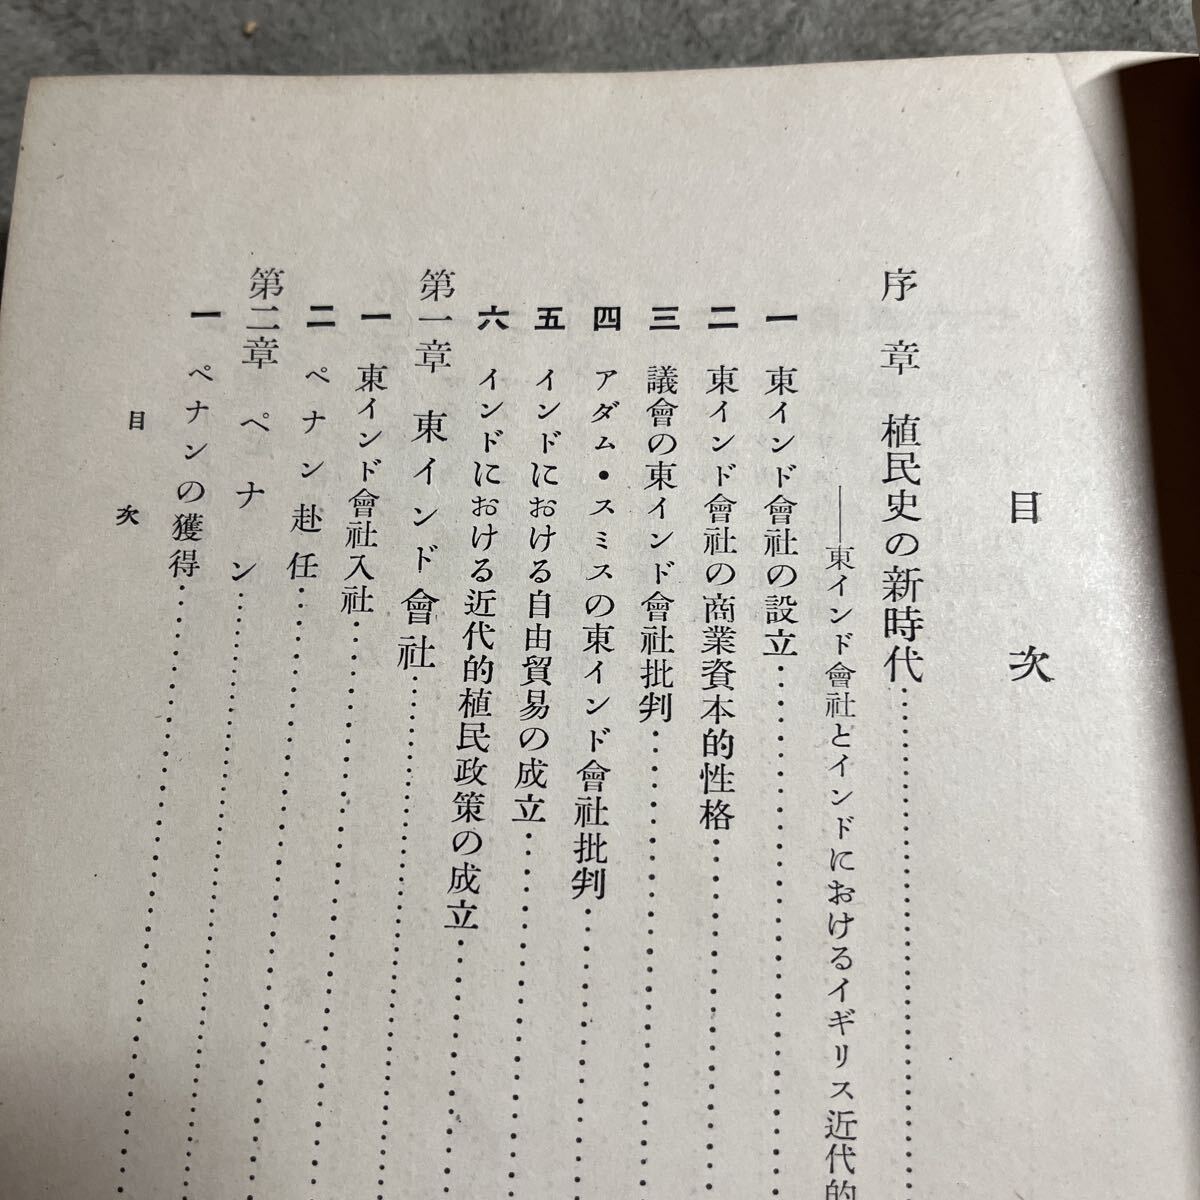 目次
序章 植民史の新時代
――東インド會社とインドにおけるイギリス近代的
一 東インド會社の設立
二 東インド會社の商業資本的性格
三 議會の東インド會社批判
四 アダム・スミスの東インド會社批判
五 インドにおける自由貿易の成立
六 インドにおける近代的植民政策の成立
第一章 東インド會社
一 東インド會社入社
二 ペナン赴任
第二章 ペナン
一 ペナンの獲得
目次